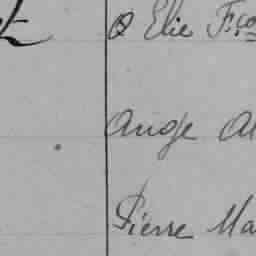 Elie Fço
Ange Al
Pierre Ma